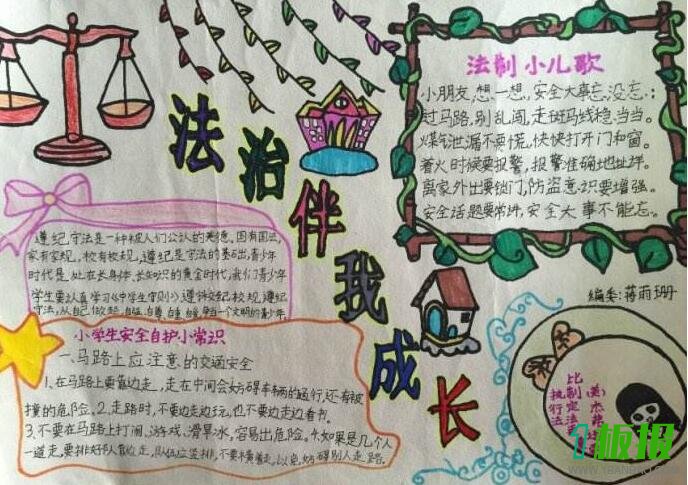 法治伴我成长
法制小儿歌
小朋友,想一想,安全大事忘没忘:
过马路,别乱闯,走斑马线稳当当。
煤气泄漏不要慌,快快打开门和窗。
着火时候要报警,报警准确地址详。
离家外出要锁门,防盗意识要增强。
安全话题要常讲,安全大事不能忘。
编委:蒋雨珊
遵纪守法是一种被人们公认的美德。国有国法,
家有家规,校有校规,遵纪是守法的基础,青少年
时代是处在长身体、长知识的黄金时代,我们青少年
学生要认真学习《中学生守则》遵守校纪校规,遵纪
守法,从自己做起,自强、自尊、自重、争当一个文明的青少年。
小学生安全自护小常识
一、马路上应注意的交通安全
1、在马路上要靠边走,走在中间会妨碍车辆的通行,还有被
撞的危险。2、走路时,不要边走边玩,也不要边走边看书。
3、不要在马路上打闹、游戏、滑旱冰,容易出危险。4、如果是几个人
一道走,要排好队靠边走,队伍应竖排,不要横着走,以免妨碍别人走路。
比
制定法
执行法
(美)杰
1板报
WWW.1BANBAO.COM